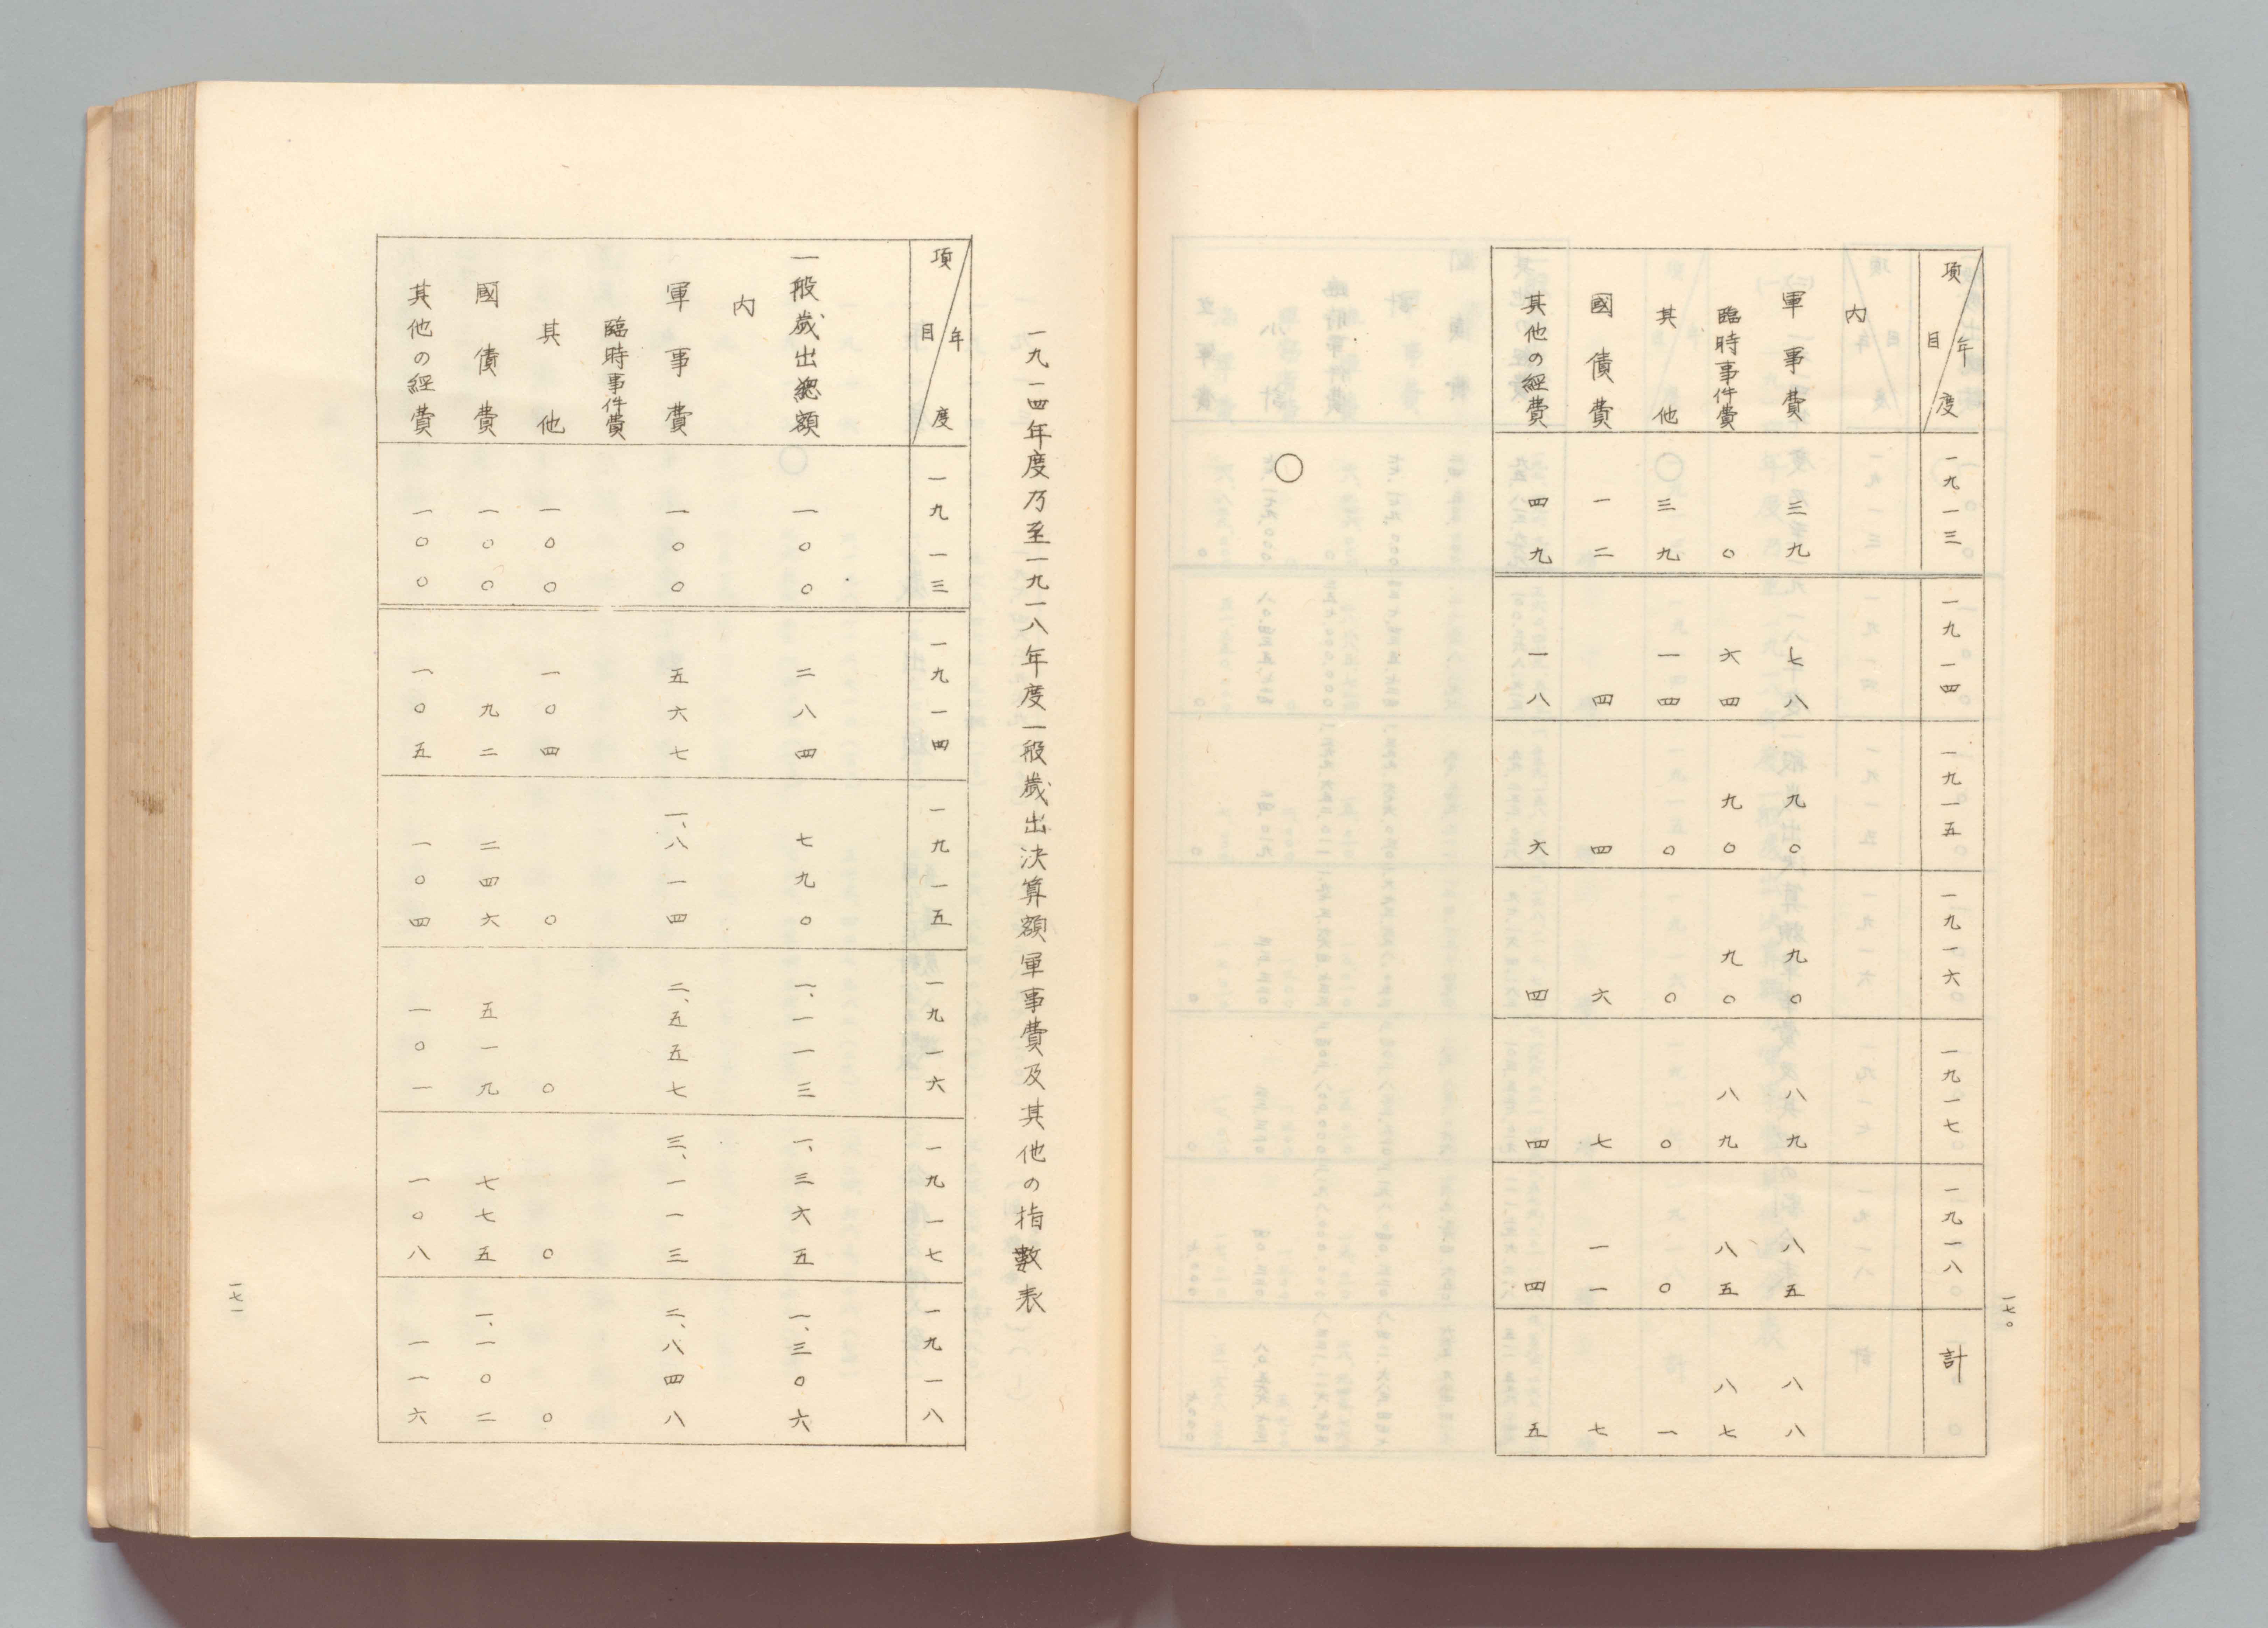 一七〇
項目 年度 一九一三 一九一四 一九一五 一九一六 一九一七 一九一八 計
內
軍事費 三九 七八 九〇 九〇 八九 八五 八八
臨時事件費 〇 六四 九〇 九〇 八九 八五 八七
其他 三九 一四 〇 〇 〇 〇 一
國債費 一二 四 四 六 七 一一 七
其他の經費 四九 一八 六 四 四 四 五
〇
一九一四年度乃至一九一八年度一般歲出決算額軍事費及其他の指數表
項目 年度 一九一三 一九一四 一九一五 一九一六 一九一七 一九一八
一般歲出總額 一〇〇 二八四 七九〇 一、一一三 一、三六五 一、三〇六
內
軍事費 一〇〇 五六七 一、八一四 二、五五七 三、一一三 二、八四八
臨時事件費
其他 一〇〇 一〇四 〇 〇 〇 〇
國債費 一〇〇 九二 二四六 五一九 七七五 一、一〇二
其他の經費 一〇〇 一〇五 一〇四 一〇一 一〇八 一一六
一七一